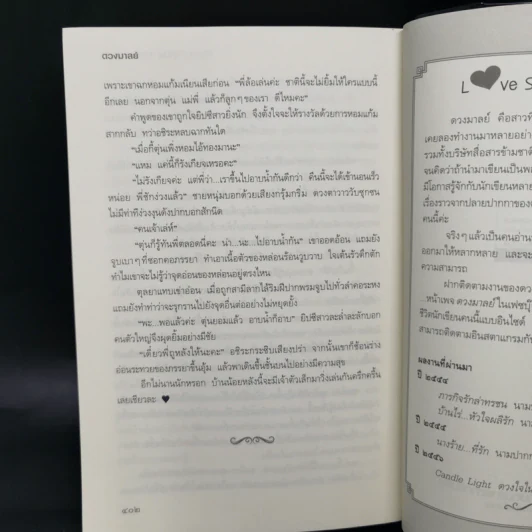 ดวงมาลย์
เพราะเขาฉกหอมแก้มเนียนเสียก่อน “พี่ล้อเล่นค่ะ ชาตินี้จะไม่ยิ้มให้ใครแบบนี้
อีกเลย นอกจากตุ่น แม่พี่ แล้วก็ลูกๆ ของเรา ดีไหมคะ”
คำพูดของเขาถูกใจยิปซีสาวยิ่งนัก จึงตั้งใจจะให้รางวัลด้วยการหอมแก้ม
สากกลับ ทว่าอชิระหลบฉากทันใด
“เมื่อกี้ตุ่นเพิ่งหอมไอ้ทองมานะ”
“แหม แค่นี้ก็รังเกียจเหรอคะ”
“ไม่รังเกียจค่ะ แต่พี่ว่า...เราขึ้นไปอาบน้ำกันดีกว่า คืนนี้จะได้เข้านอนเร็ว
หน่อย พี่ชักง่วงแล้ว” ชายหนุ่มบอกด้วยเสียงกรุ้มกริ่ม ดวงตาวาววับซุกซน
ไม่มีท่าทีง่วงงุนดังปากบอกสักนิด
“คนเจ้าเล่ห์”
“ตุ่นก็รู้ทันพี่ตลอดนี่คะ น่า...นะ...ไปอาบน้ำกัน” เขาออดอ้อน แถมยัง
จูบเบาๆ ที่ซอกคอภรรยา ทำเอาเนื้อตัวของหล่อนร้อนวูบวาบ ใจเต้นรัวตึกตัก
ทำไมเขาจะไม่รู้ว่าจุดอ่อนของหล่อนอยู่ตรงไหน
ตุลยาแทบเข่าอ่อน เมื่อถูกสามีลากไล้ริมฝีปากพรมจูบไปทั่วลำคอระหง
แถมยังทำท่าว่าจะรุกรานไปยังจุดอื่นต่ออย่างไม่หยุดยั้ง
“พะ...พอแล้วค่ะ ตุ่นยอมแล้ว อาบน้ำก็อาบ” ยิปซีสาวละล่ำละลักบอก
คนตัวใหญ่จึงผุดยิ้มอย่างมีชัย
“เดี๋ยวพี่ถูหลังให้นะคะ” อชิระกระซิบเสียงปร่า จากนั้นเขาก็ช้อนร่าง
อ่อนระทวยของภรรยาขึ้นอุ้ม แล้วพาเดินขึ้นชั้นบนไปอย่างมีความสุข
อีกไม่นานนักหรอก บ้านน้อยหลังนี้จะมีเจ้าตัวเล็กมาวิ่งเล่นกันครึกครื้น
เลยเชียวละ ♥
๔๐๒
L♥ve S
ดวงมาลย์ คือสาวที่
เคยลองทำงานมาหลายอย่าง
รวมทั้งบริษัทสื่อสารข้ามชาติ
จนคิดว่าถ้านำมาเขียนเป็นพ
มีโอกาสรู้จักกับนักเขียนหลาย
เรื่องราวจากปลายปากกาของ
คนนี้ค่ะ
จริงๆ แล้วเป็นคนอ่าน
ออกมาให้หลากหลาย และจะ
ความสามารถ
ฝากติดตามงานของดวง
...หน้าเพจ ดวงมาลย์ ในเฟซบุ๊
ชีวิตนักเขียนคนนี้แบบอินไซด์
สามารถติดตามอินสตาแกรมกั
ผลงานที่ผ่านมา
ปี ๒๕๕๔
ภารกิจรักล่าทรชน นาม
บ้านไร่...หัวใจผลิรัก นา
ปี ๒๕๕๕
นางร้าย...ที่รัก นามปาก
ปี ๒๕๕๖
Candle Light ดวงใจใน